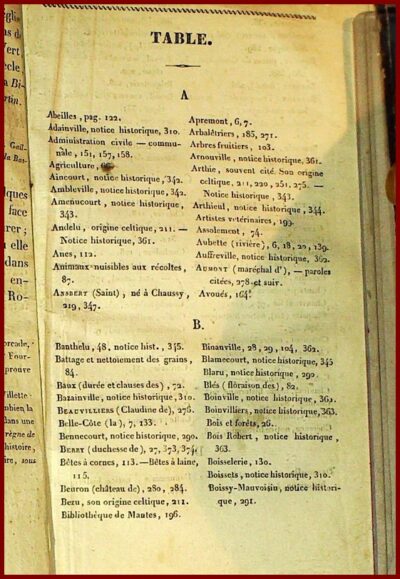 TABLE.
A
Abeilles, pag. 122.
Adainville, notice historique, 310.
Administration civile — commu-
nale, 151, 157, 158.
Agriculture,
Aincourt, notice historique, 342.
Ambleville, notice historique, 342.
Amenucourt, notice historique,
343.
Andelu, origine celtique, 211. —
Notice historique, 361.
Anes, 112.
Animaux nuisibles aux récoltes,
87.
Ansbert (Saint), né à Chaussy,
219, 347.
Apremont, 6, 7.
Arbalétriers, 185, 271.
Arbres fruitiers, 103.
Arnouville, notice historique, 361.
Arthie, souvent cité. Son origine
celtique, 211, 220, 251, 275. —
Notice historique, 343.
Arthieul, notice historique, 344.
Artistes vétérinaires, 199.
Assolement, 74.
Aubette (rivière), 6, 18, 20, 139.
Auffreville, notice historique, 362.
Aumont (maréchal d'), — paroles
citées, 278 et suiv.
Avoués, 164.
B.
Banthelu, 48, notice hist., 345.
Battage et nettoiement des grains,
84.
Baux (durée et clauses des), 72.
Bazainville, notice historique, 310.
Beauvilliers (Claudine de), 276.
Belle-Côte (la), 7, 133.
Bennecourt, notice historique, 290.
Berry (duchesse de), 27, 373, 374.
Bêtes à cornes, 113. — Bêtes à laine,
115.
Beuron (château de), 280, 284.
Bezu, son origine celtique, 211.
Bibliothèque de Mantes, 196.
Binanville, 28, 29, 104, 362.
Blamecourt, notice historique, 345
Blaru, notice historique, 292.
Blés (floraison des), 82.
Boinville, notice historique, 362.
Boinvilliers, notice historique, 363.
Bois et forêts, 26.
Bois Robert, notice historique,
363.
Boisselerie, 130.
Boissets, notice historique, 310.
Boissy-Mauvoisin, notice histori-
que, 291.